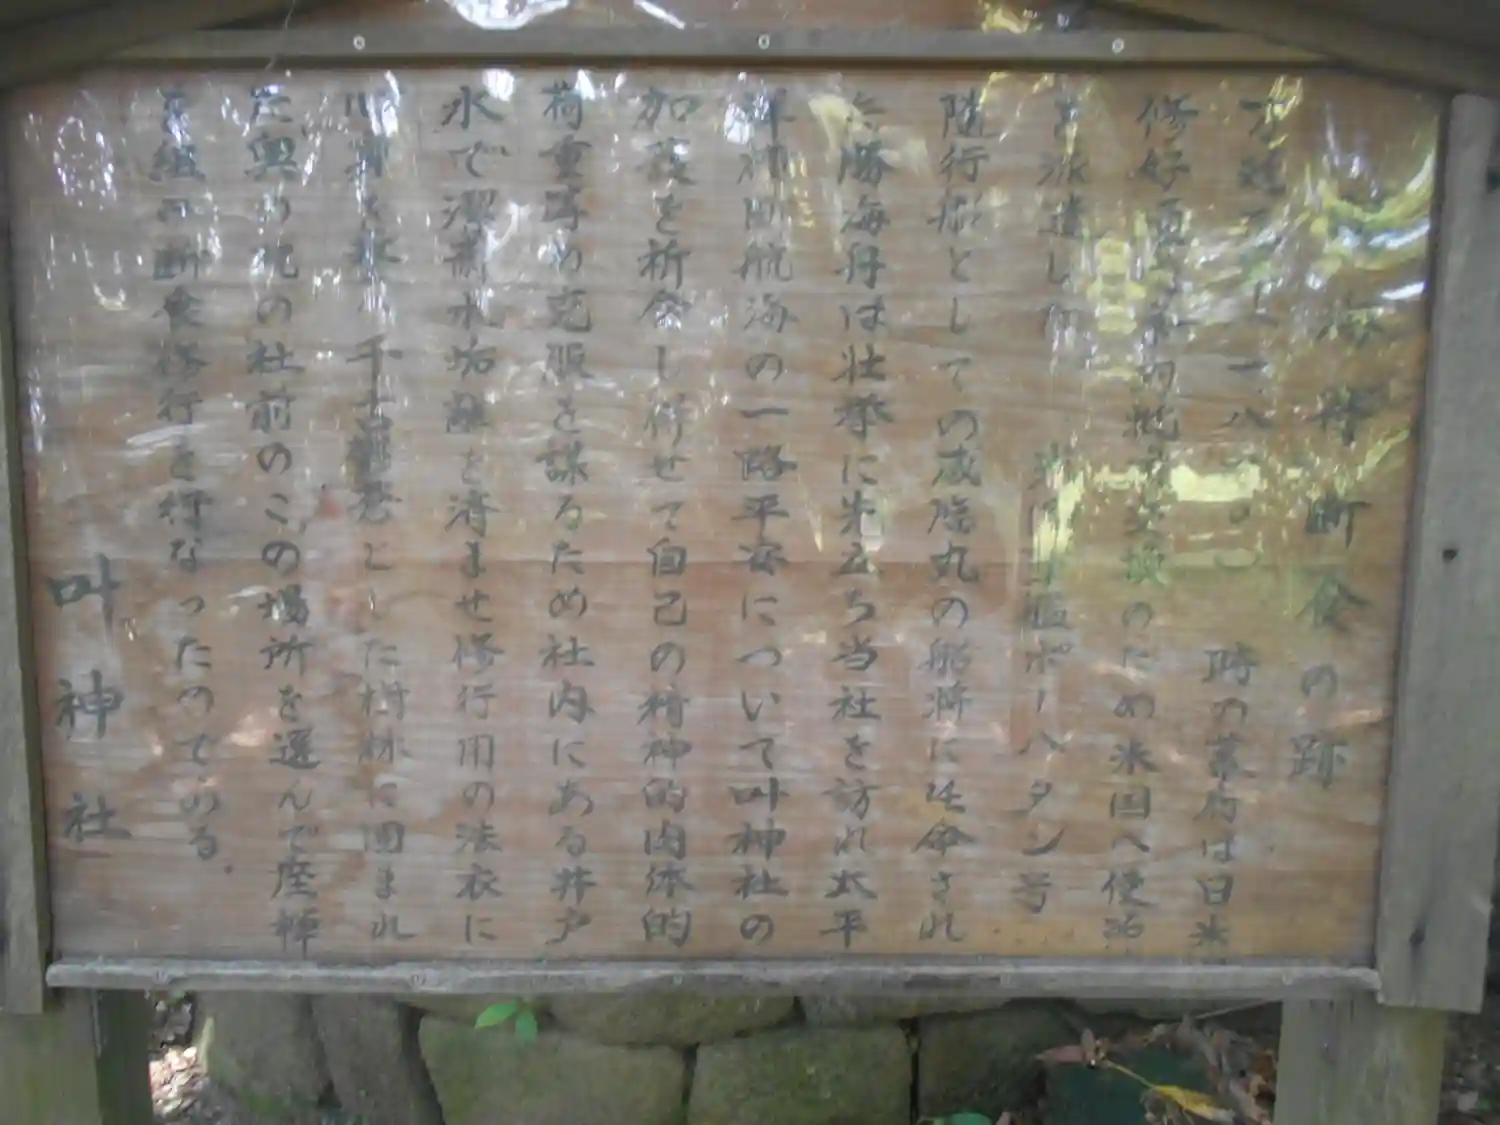 断食の跡
時の幕府は日米
修好 交換のため米国へ使節
を派遣した 米 艦ポーハタン号
随行船としての咸臨丸の船将に任命され
た勝海舟は壮挙に先立ち当社を訪れ太平
洋横断航海の一路平安について叫神社の
加護を祈念し併せて自己の精神的肉体的
荷重 め克服を謀るため社内にある井戸
水で潔斎水垢離を済ませ修行用の法衣に
千古 とした樹林に囲まれ
た奥の院の社前のこの場所を選んで座禅
を組み断食修行を行なったのである。
叫神社